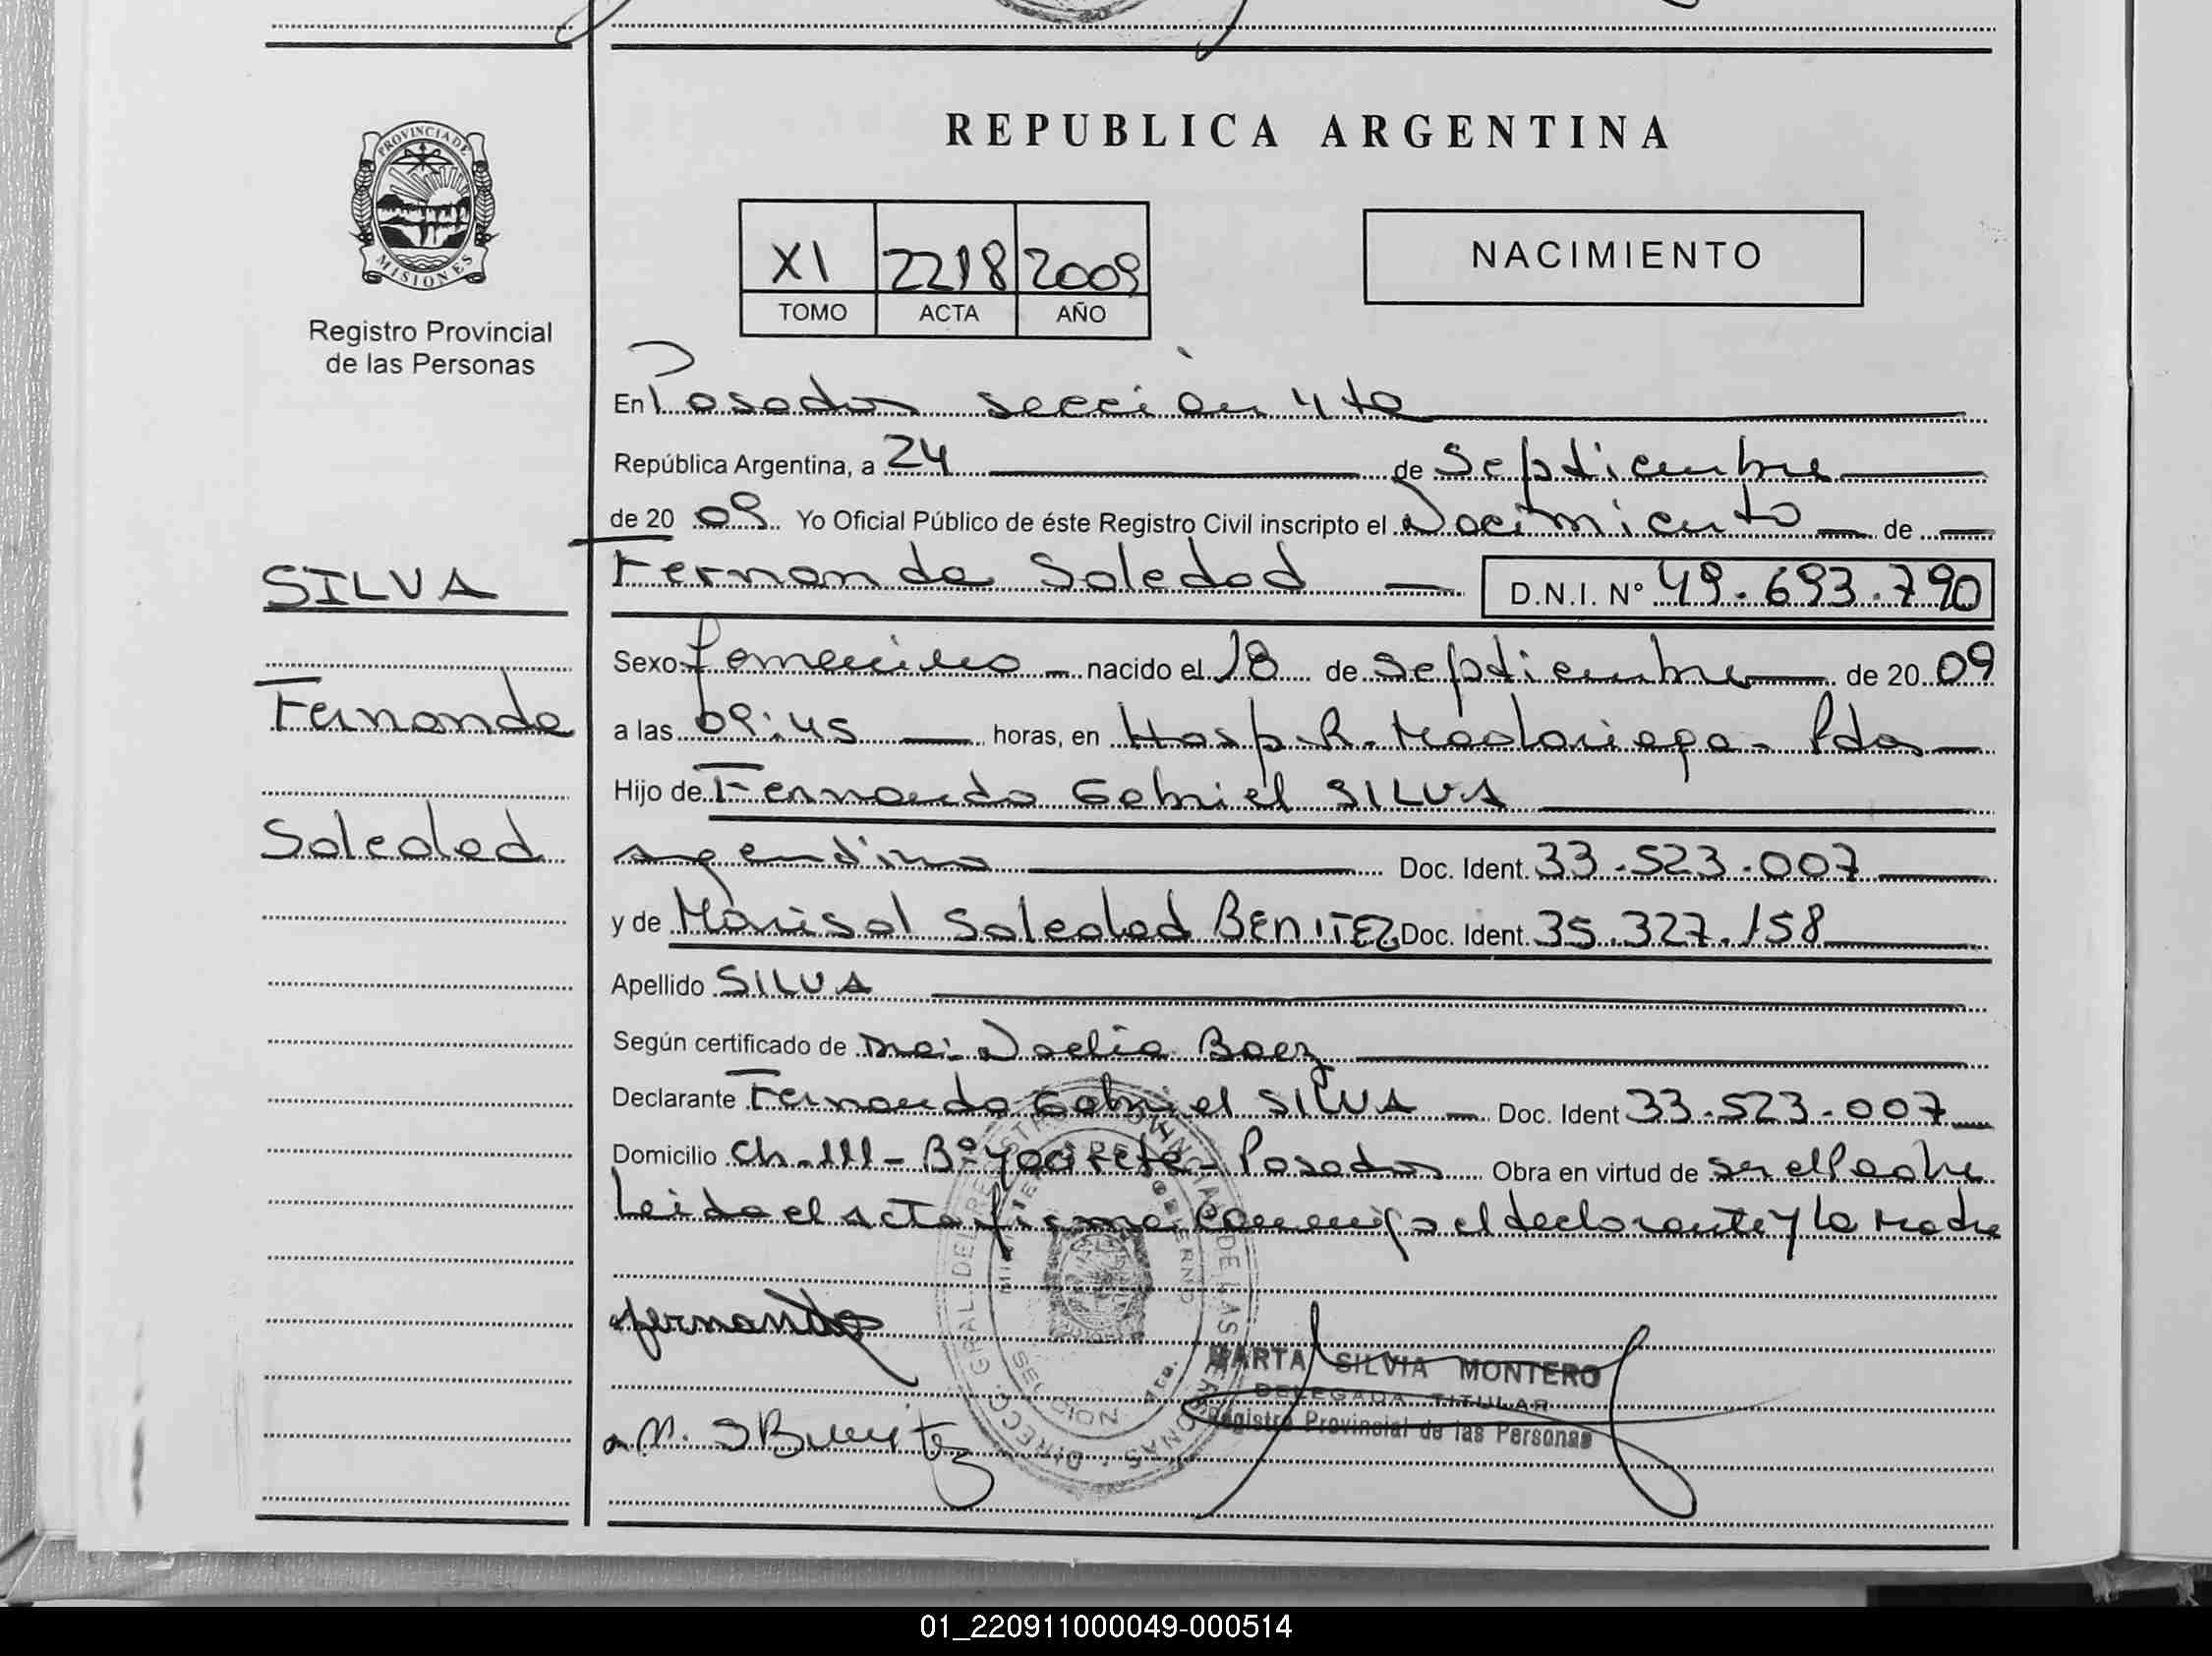 REPUBLICA ARGENTINA
PROVINCIA DE
MISIONES
Registro Provincial
de las Personas
XI 2218 2009
TOMO ACTA AÑO
NACIMIENTO
En Posadas sección 4ta
República Argentina, a 24 de Septiembre
de 20 09 Yo Oficial Público de éste Registro Civil inscripto el Nacimiento de
SILVA
Fernanda
Soledad
Fernanda Soledad D.N.I. Nº 49.693.790
Sexo femenino nacido el 18 de Septiembre de 20 09
a las 09:45 horas, en Hosp. R. Madariaga - Pdas
Hijo de Fernando Gabriel SILVA
argentino Doc. Ident. 33.523.007
y de Marisol Soledad BENITEZ Doc. Ident. 35.327.158
Apellido SILVA
Según certificado de Dra: Noelia Baez
Declarante Fernando Gabriel SILVA Doc. Ident 33.523.007
Domicilio Ch. 111 - Bº Yacireta - Posadas Obra en virtud de ser el Padre
Leida el acta firma conmigo el declarante y la Madre
fernando
M. S Benitez
MARTA SILVIA MONTERO
DELEGADA TITULAR
Registro Provincial de las Personas
DIRECC. GRAL. DEL REGISTRO PROVINCIAL DE LAS PERSONAS
SECCION 4ta.
01_220911000049-000514